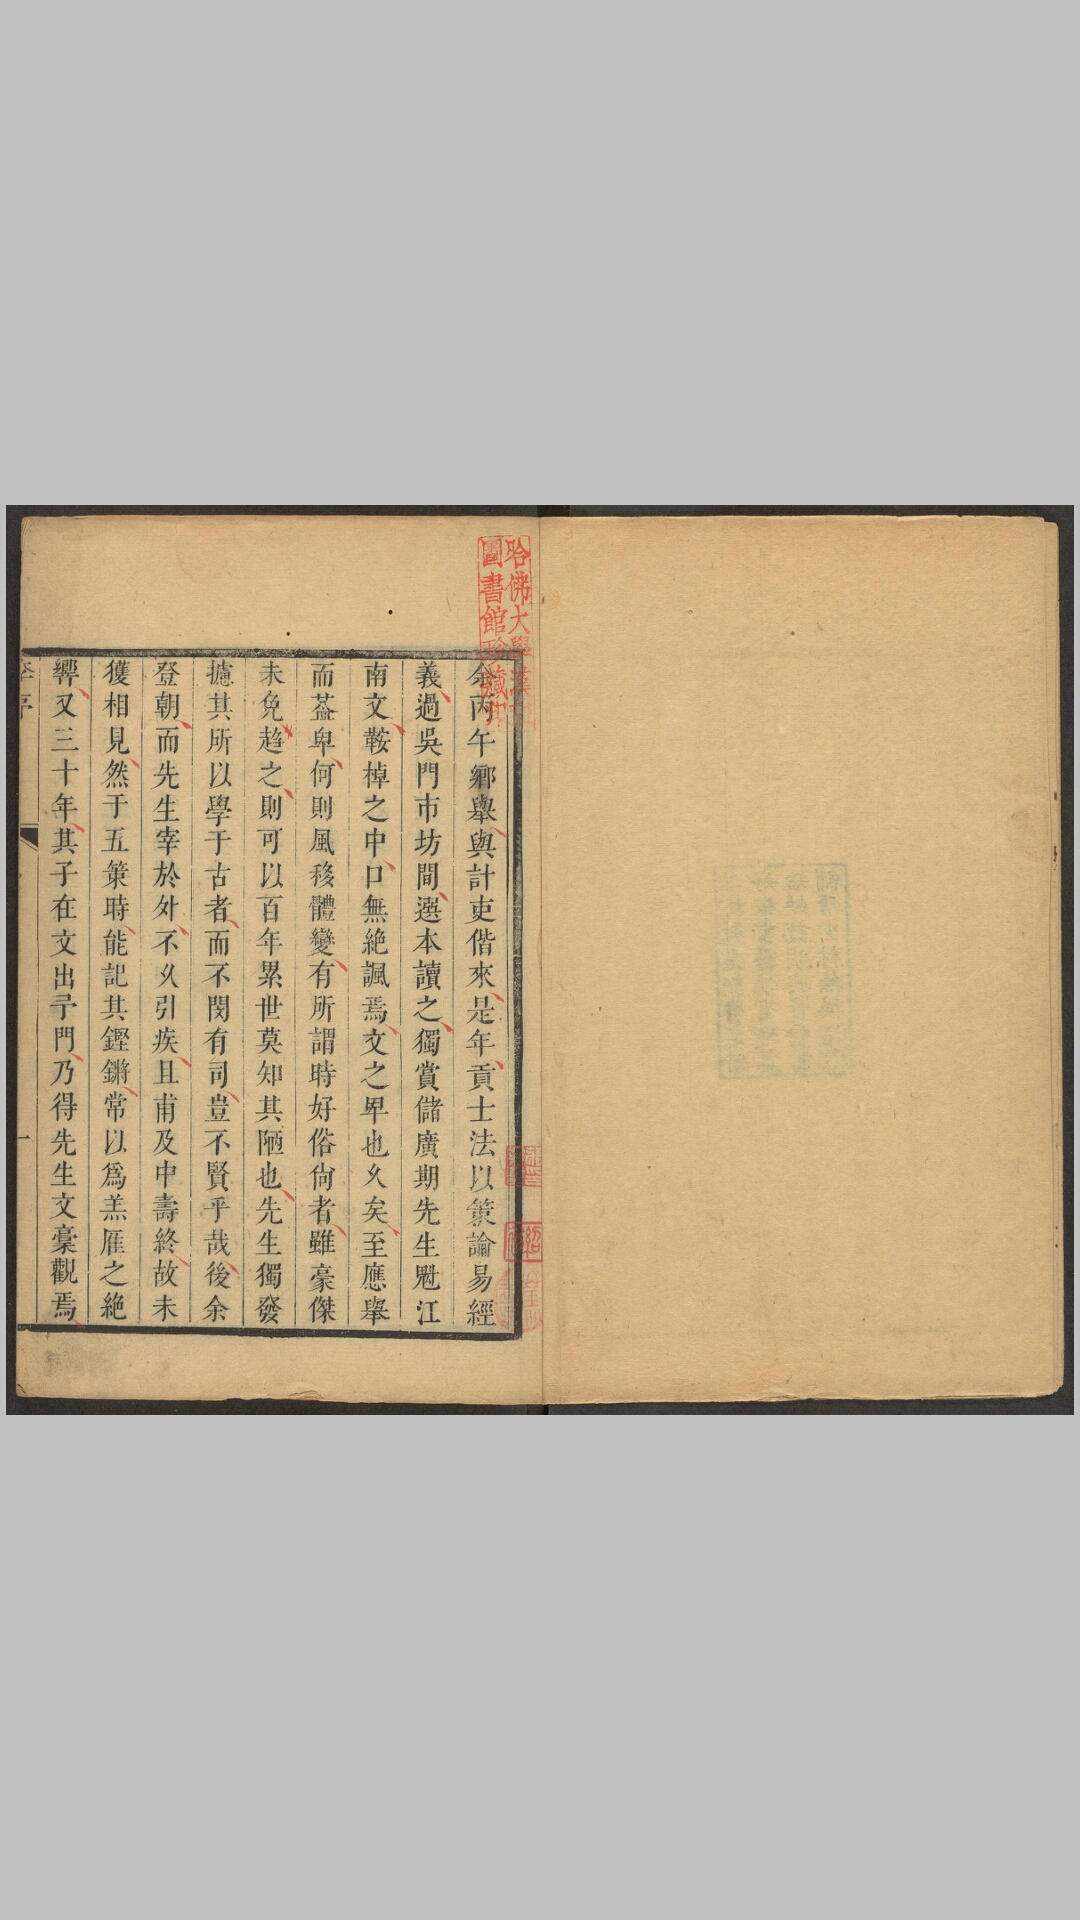 余丙午鄉舉與計吏偕來是年貢士法以策論易經
義過吳門市坊間選本讀之獨賞儲廣期先生魁江
南文鞍棹之中口無絶諷焉文之卑也久矣至應舉
而葢卑何則風移體變有所謂時好俗尚者雖豪傑
未免趋之則可以百年累世莫知其陋也先生獨發
攄其所以學于古者而不閔有司豈不賢乎哉後余
登朝而先生宰於外不久引疾且甫及中壽終故未
獲相見然于五策時能記其鏗鏘常以爲羔雁之絶
響又三十年其子在文出予門乃得先生文稾觀焉
一
哈佛大學漢
圖書館珍藏